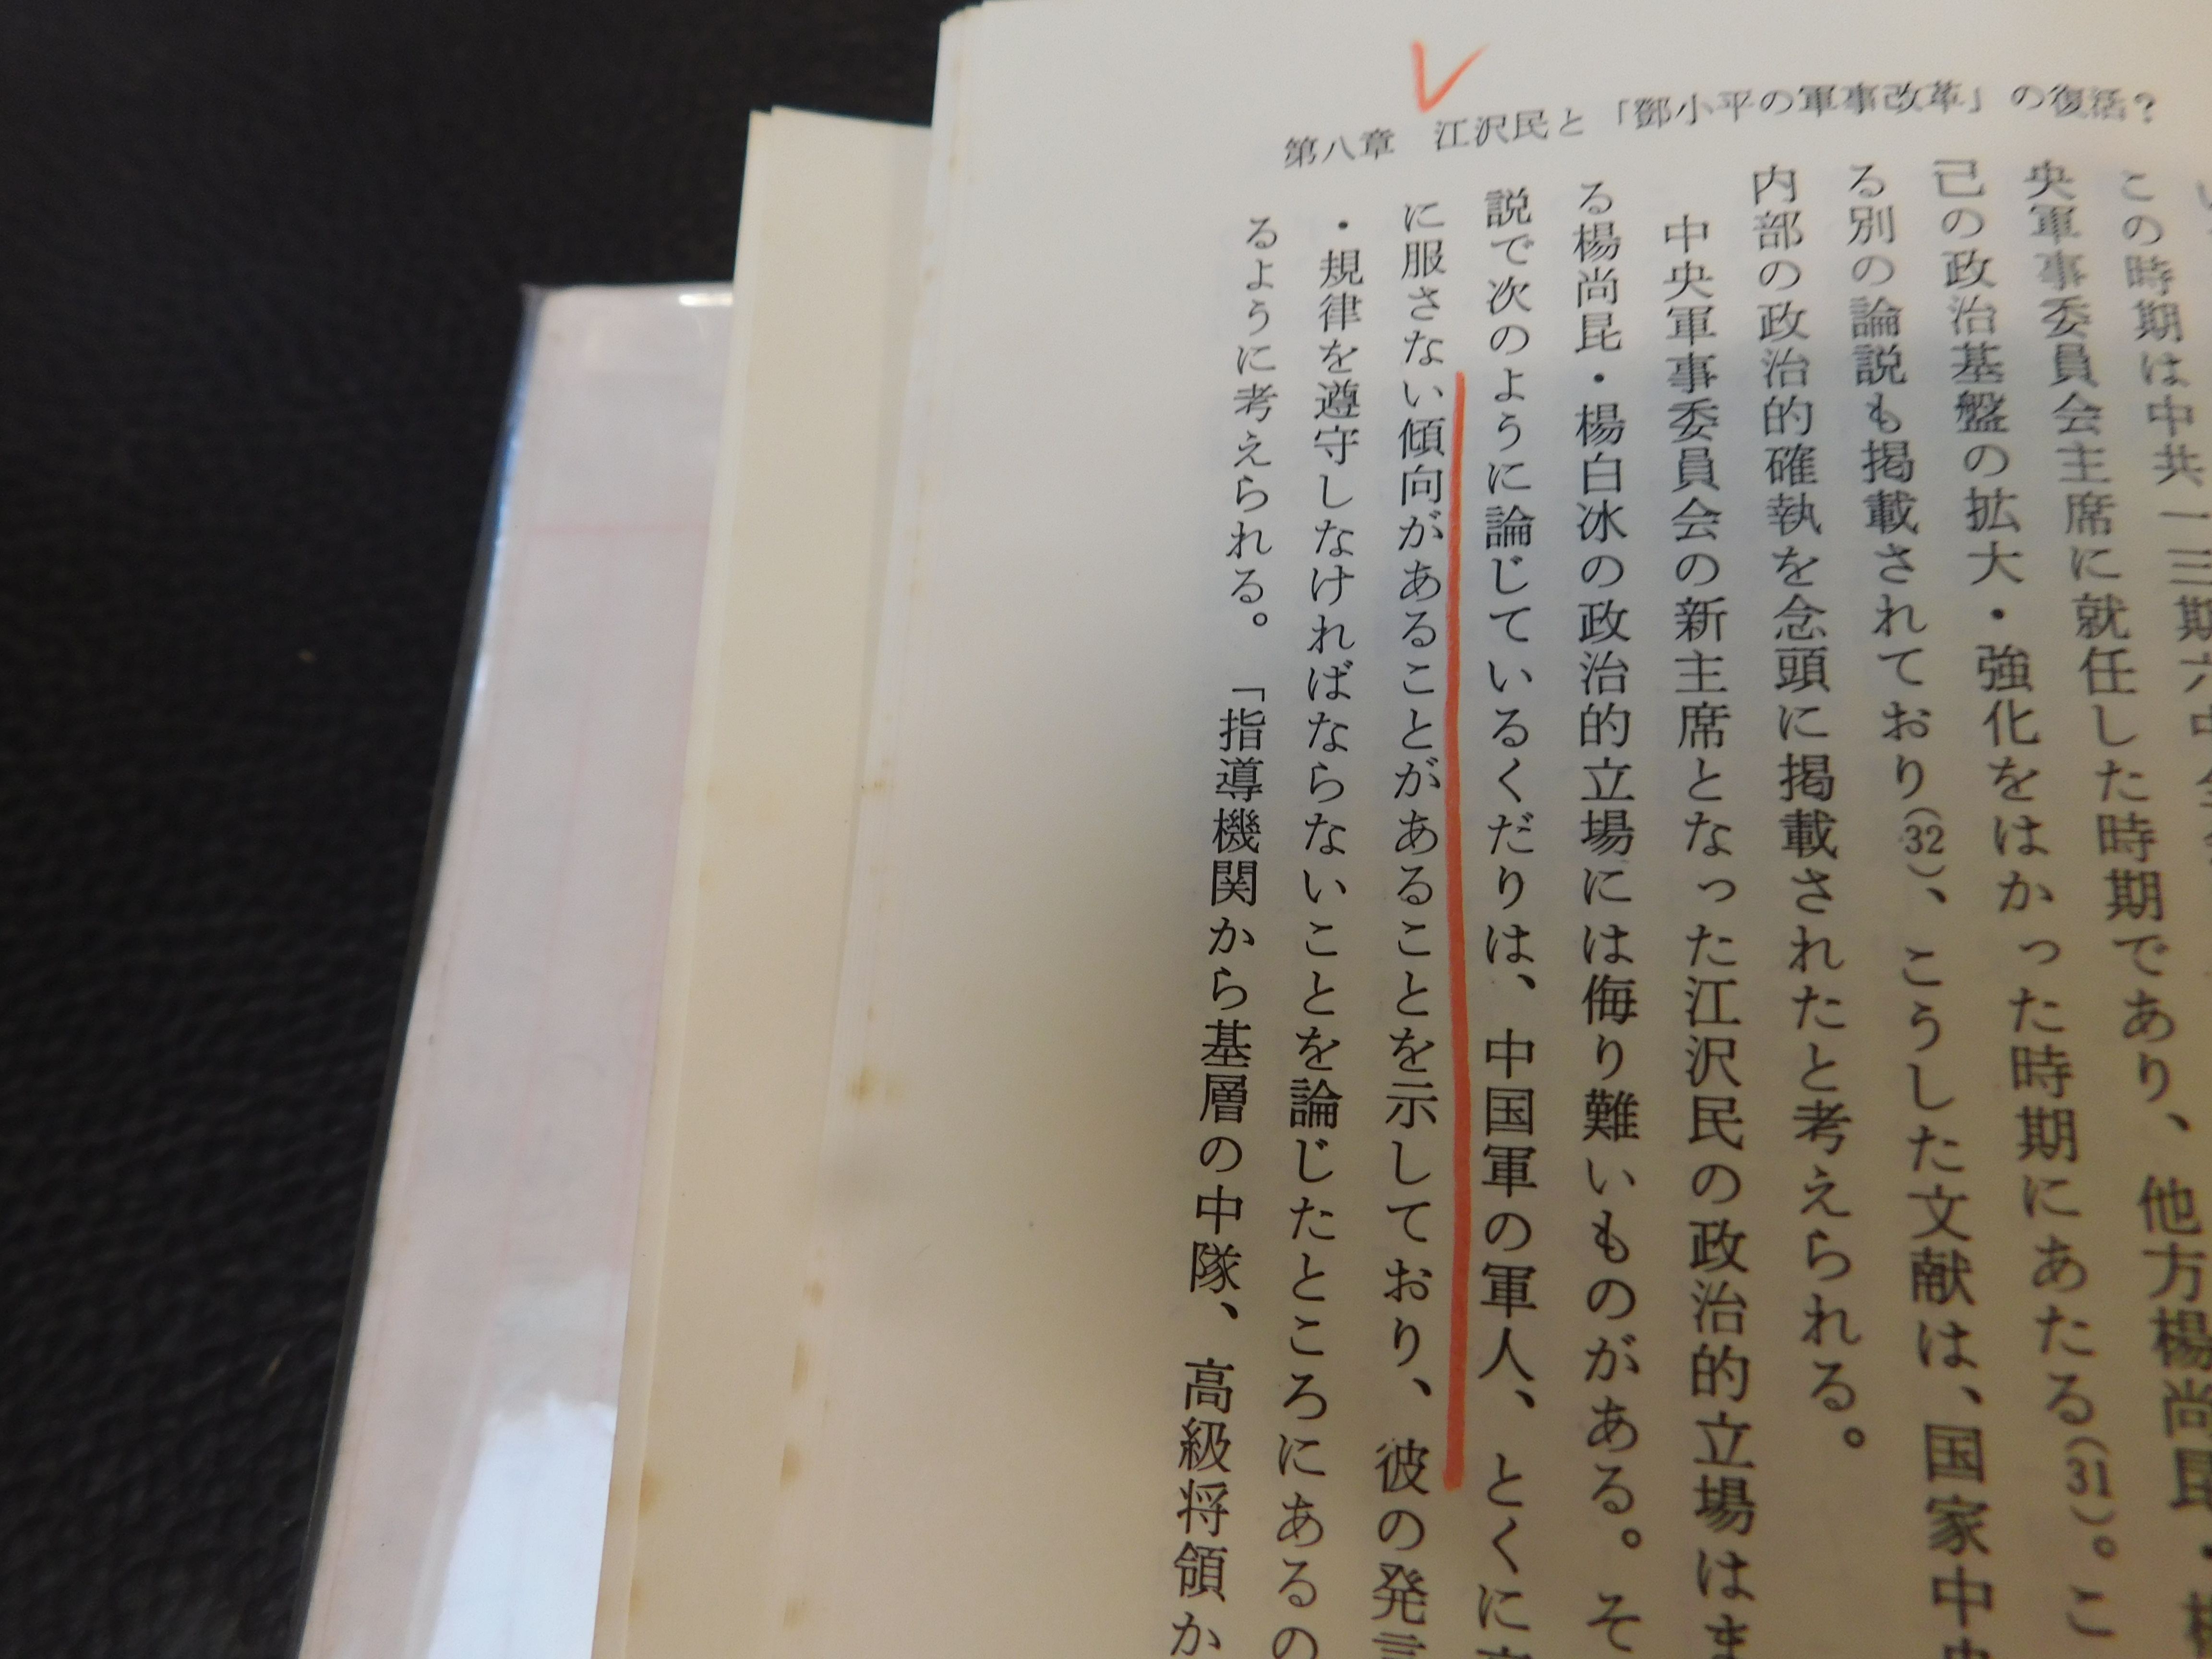 第八章　江沢民と「鄧小平の軍事改革」の復活？
この時期は中共一三期六中
央軍事委員会主席に就任した時期であり、他方楊尚昆・
己の政治基盤の拡大・強化をはかった時期にあたる(31)。こ
る別の論説も掲載されており(32)、こうした文献は、国家中央
内部の政治的確執を念頭に掲載されたと考えられる。
中央軍事委員会の新主席となった江沢民の政治的立場はま
る楊尚昆・楊白冰の政治的立場には侮り難いものがある。そ
説で次のように論じているくだりは、中国軍の軍人、とくに
に服さない傾向があることがあることを示しており、彼の発言
・規律を遵守しなければならないことを論じたところにあるの
るように考えられる。「指導機関から基層の中隊、高級将領か